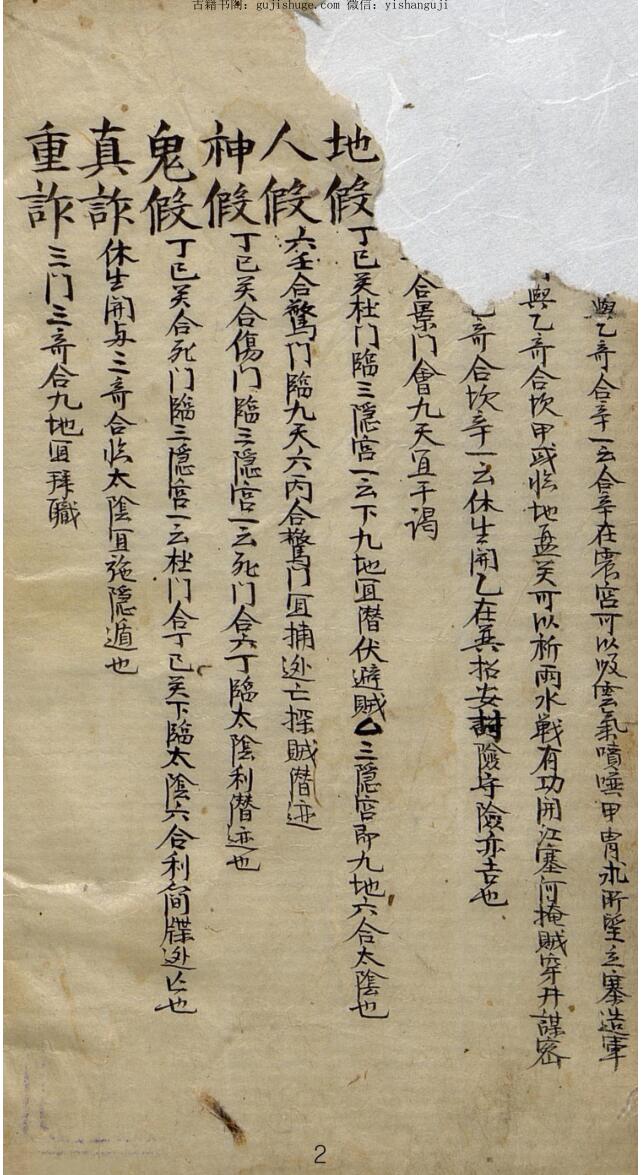 古籍书阁：gujishuge.com 微信：yishanguji
與乙奇合辛一云合辛在震宮可以吸雲氣噴唾甲胄 所望立寨造軍
與乙奇合坎甲或临地盘关可以祈雨水战有功開江塞河掩贼穿井謀密
奇合坎辛一云休生開乙在 招安 險守險亦吉也
合景門會九天宜干谒
地假丁已关杜门臨三隐宫一云下九地宜潜伏避贼 三隐宫即九地六合太陰也
人假六壬合驚门臨九天六丙合驚门宜捕逃亡探贼潜迹
神假丁已关合傷门臨三隐宫一云死门合六丁臨太陰利潜迹也
鬼假丁已关合死门臨三隐宫一云杜门合丁已关下臨太陰六合利 逃亡也
真詐休生開与三奇合临太陰宜施隐遁也
重詐三门三奇合九地宜拜職
2